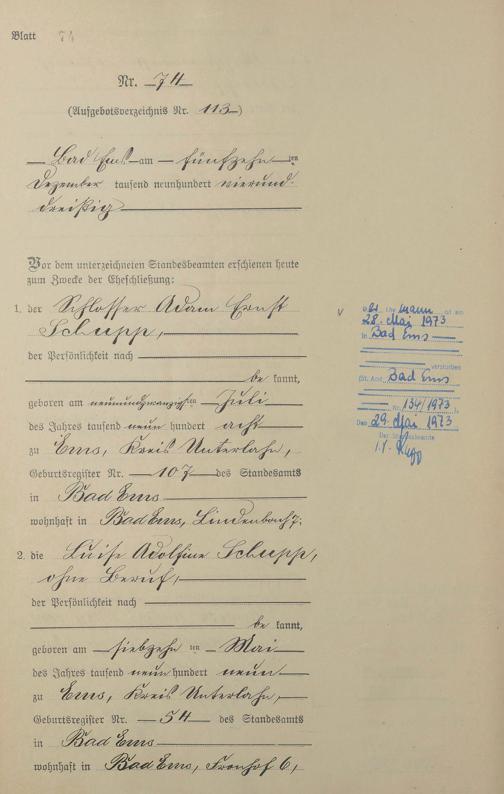 Blatt 74
Nr. 74
(Aufgebotsverzeichnis Nr. 113)
Bad Ems am fünfzehnten
Dezember tausend neunhundert vierund-
dreißig
Vor dem unterzeichneten Standesbeamten erschienen heute
zum Zwecke der Eheschließung:
1. der Schlosser Adam Ernst
Schupp,
der Persönlichkeit nach
be kannt,
geboren am neunundzwanzigsten Juli
des Jahres tausend neun hundert acht
zu Ems, Kreis Unterlahn,
Geburtsregister Nr. 107 des Standesamts
in Bad Ems
wohnhaft in Bad Ems, Lindenbach 7.
2. die Luise Adolfine Schupp,
ohne Beruf,
der Persönlichkeit nach
be kannt,
geboren am siebzehn ten Mai
des Jahres tausend neun hundert neun
zu Ems, Kreis Unterlahn,
Geburtsregister Nr. 54 des Standesamts
in Bad Ems
wohnhaft in Bad Ems, Fronhof 6,
Der Ehemann ist am
28. Mai 1973
in Bad Ems
verstorben
(St. Amt Bad Ems
Nr. 134/1973).
Den 29. Mai 1973
Der Standesbeamte
I.V.